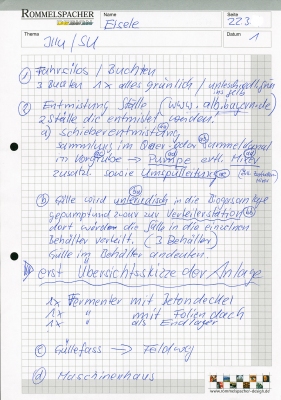 ROMMELSPACHER
Name
Eisele
Seite
223
Thema
Illu / SU
Datum
1
① Fahrsilos / Buchten
3 Buchten 1x alles grünlich / unterschiedl. grün
② Entmistung Ställe (www. alb.bayern.de)
2 Ställe die entmistet werden!
a) schieberentmistung
sammlung im Quer- oder Sammelkanal
in Vorgrube → Pumpe evtl. Mixer
zusätzl. sowie Umspülleitung
b) Gülle wird unterirdisch in die Biogasanlage
gepumpt und zwar zur Verteilerstation
dort werden die Fälle in die einzelnen
Behälter verteilt. (3 Behälter)
Gülle im Behälter andeuten.
erst Übersichtsskizze der Anlage
1x Fermenter mit Betondeckel
1x " mit Foliendach
1x " als Endlager
c) Güllefass → Feldweg
d) Maschinenhaus
www.rommelspacher-design.de